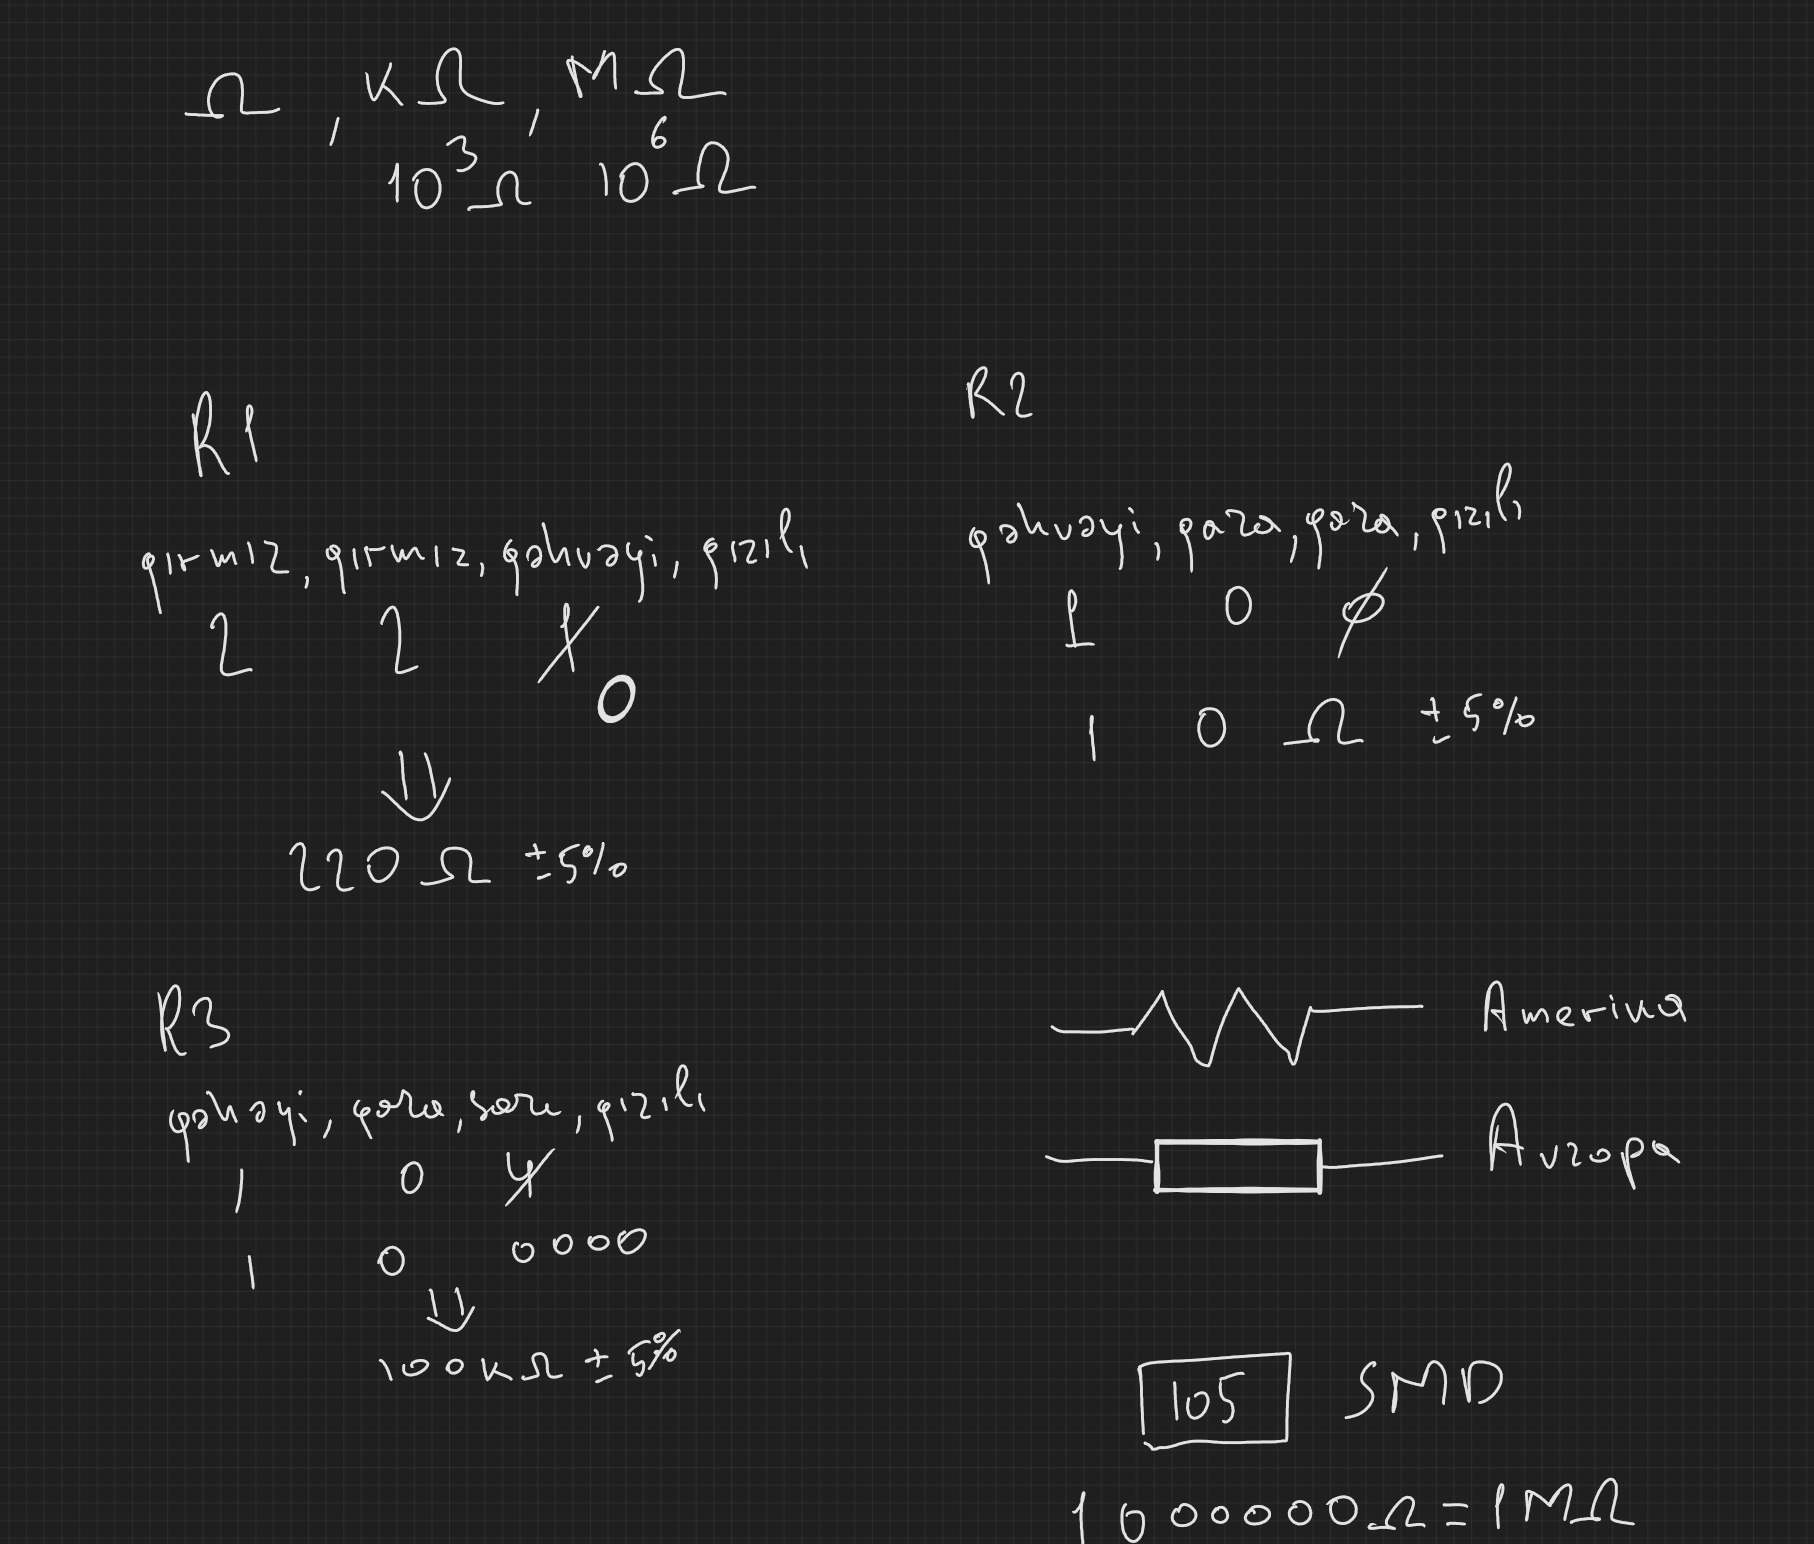 Ω, KΩ, MΩ
10³Ω 10⁶Ω
R1
qırmız, qırmız, qəhvəyi, qızılı
2 2 1
0
⇓
220 Ω ±5%
R2
qəhvəyi, qara, qara, qızılı
1 0 0
1 0 Ω ±5%
R3
qəhəyi, qara, sarı, qızılı
1 0 4
1 0 0000
⇓
100KΩ ±5%
Amerika
Avropa
105 SMD
1000000Ω = 1MΩ